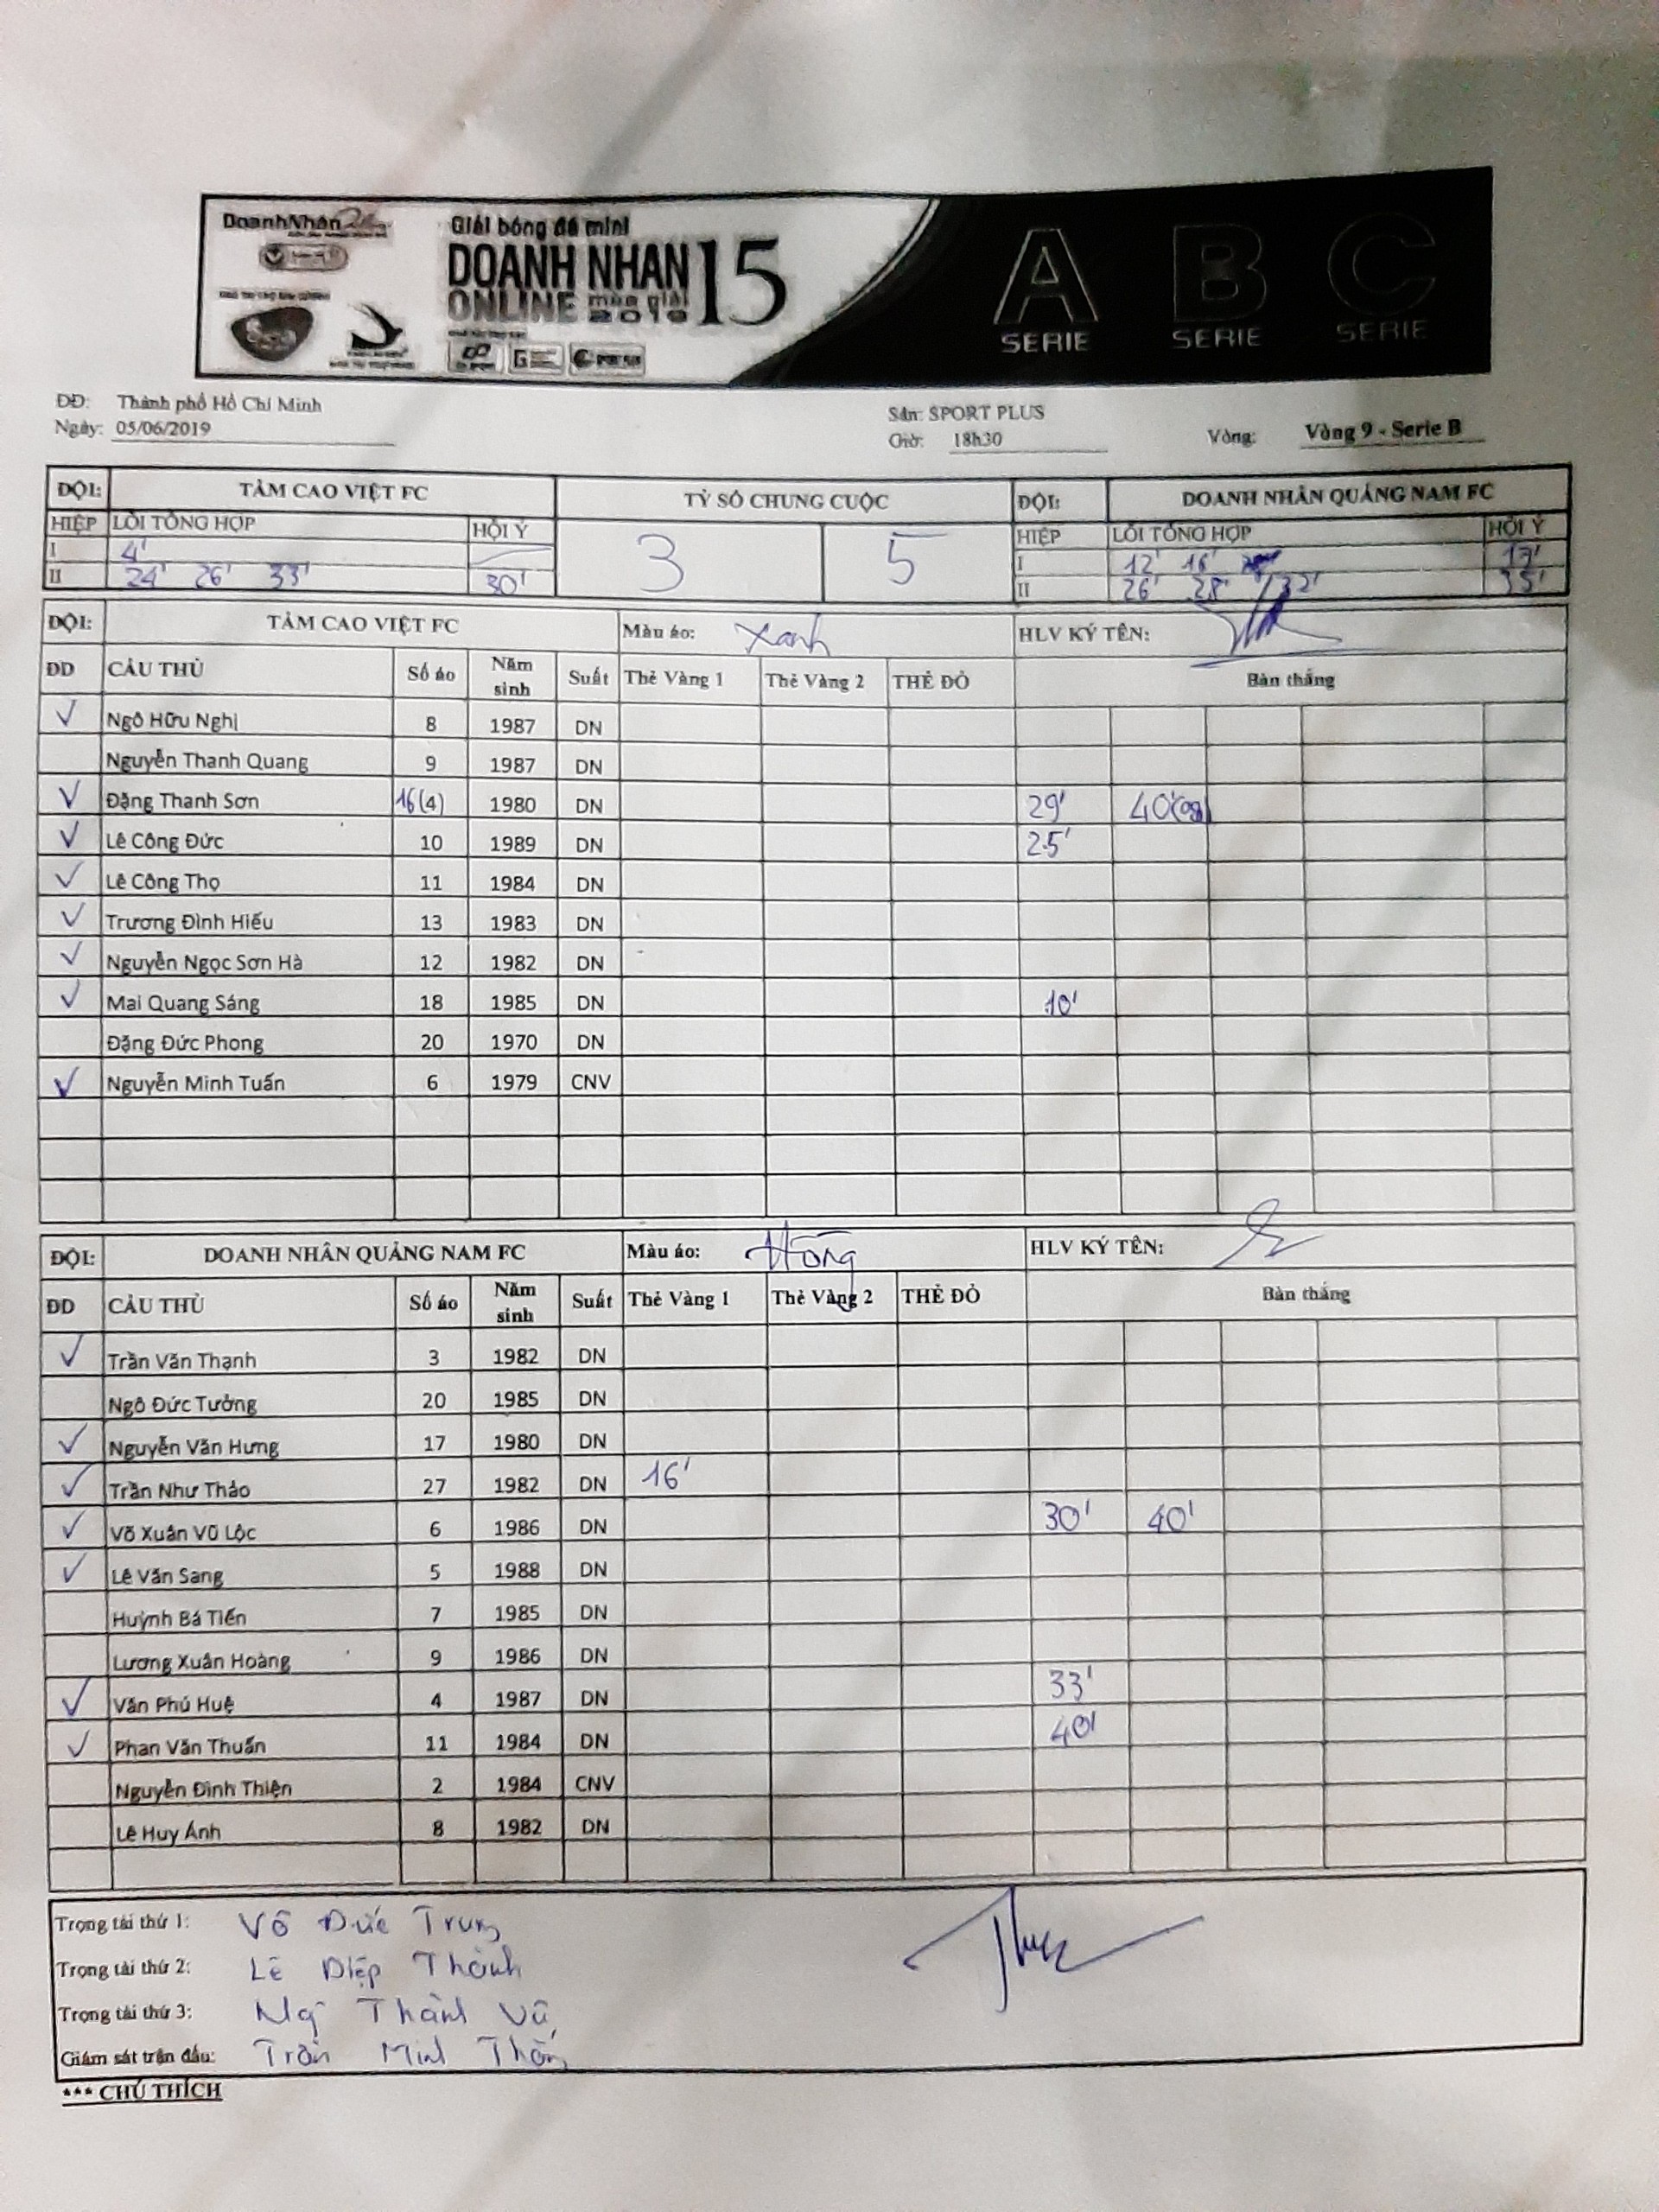 DoanhNhân
Giải bóng đá mini
DOANH NHÂN 15
ONLINE mùa giải 2019
A SERIE B SERIE C SERIE
SPORT PLUS
ĐĐ: Thành phố Hồ Chí Minh
Sân: SPORT PLUS
Ngày: 05/06/2019
Giờ: 18h30
Vòng: Vòng 9 - Serie B
ĐỘI: TẦM CAO VIỆT FC TỶ SỐ CHUNG CUỘC ĐỘI: DOANH NHÂN QUẢNG NAM FC
HIỆP LỖI TỔNG HỢP HỘI Ý 3 5 HIỆP LỖI TỔNG HỢP HỘI Ý
I 4' I 12' 16' 17'
II 24' 26' 33' 30' II 26' 28' 32' 35'
ĐỘI: TẦM CAO VIỆT FC Màu áo: Xanh HLV KÝ TÊN:
ĐD CẦU THỦ Số áo Năm sinh Suất Thẻ Vàng 1 Thẻ Vàng 2 THẺ ĐỎ Bàn thắng
✓ Ngô Hữu Nghị 8 1987 DN
Nguyễn Thanh Quang 9 1987 DN
✓ Đặng Thanh Sơn 16(4) 1980 DN 29' 40'(og)
✓ Lê Công Đức 10 1989 DN 25'
✓ Lê Công Thọ 11 1984 DN
✓ Trương Đình Hiếu 13 1983 DN
✓ Nguyễn Ngọc Sơn Hà 12 1982 DN
✓ Mai Quang Sáng 18 1985 DN 10'
Đặng Đức Phong 20 1970 DN
✓ Nguyễn Minh Tuấn 6 1979 CNV
ĐỘI: DOANH NHÂN QUẢNG NAM FC Màu áo: Hồng HLV KÝ TÊN:
ĐD CẦU THỦ Số áo Năm sinh Suất Thẻ Vàng 1 Thẻ Vàng 2 THẺ ĐỎ Bàn thắng
✓ Trần Văn Thạnh 3 1982 DN
Ngô Đức Tưởng 20 1985 DN
✓ Nguyễn Văn Hưng 17 1980 DN
✓ Trần Như Thảo 27 1982 DN 16'
✓ Võ Xuân Vũ Lộc 6 1986 DN 30' 40'
✓ Lê Văn Sang 5 1988 DN
Huỳnh Bá Tiến 7 1985 DN
Lương Xuân Hoàng 9 1986 DN
✓ Văn Phú Huệ 4 1987 DN 33'
✓ Phan Văn Thuấn 11 1984 DN 40'
Nguyễn Đình Thiện 2 1984 CNV
Lê Huy Ánh 8 1982 DN
Trọng tài thứ 1: Võ Đức Trung
Trọng tài thứ 2: Lê Diệp Thành
Trọng tài thứ 3: Ng Thành Vũ
Giám sát trận đấu: Trần Minh
*** CHÚ THÍCH